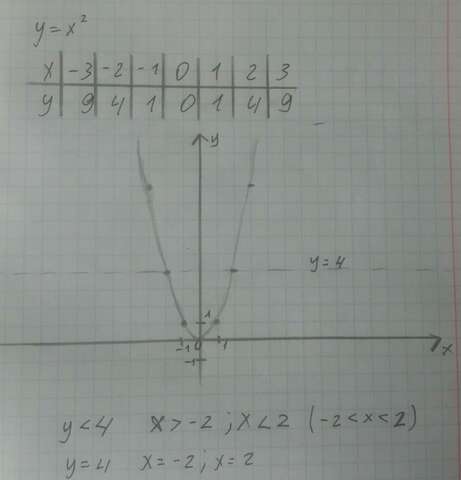 y = x²
x | -3 | -2 | -1 | 0 | 1 | 2 | 3
y | 9 | 4 | 1 | 0 | 1 | 4 | 9
y
y=4
1
-1 0 1
x
-1
y < 4 x > -2 ; x < 2 (-2 < x < 2)
y = 4 x = -2 ; x = 2